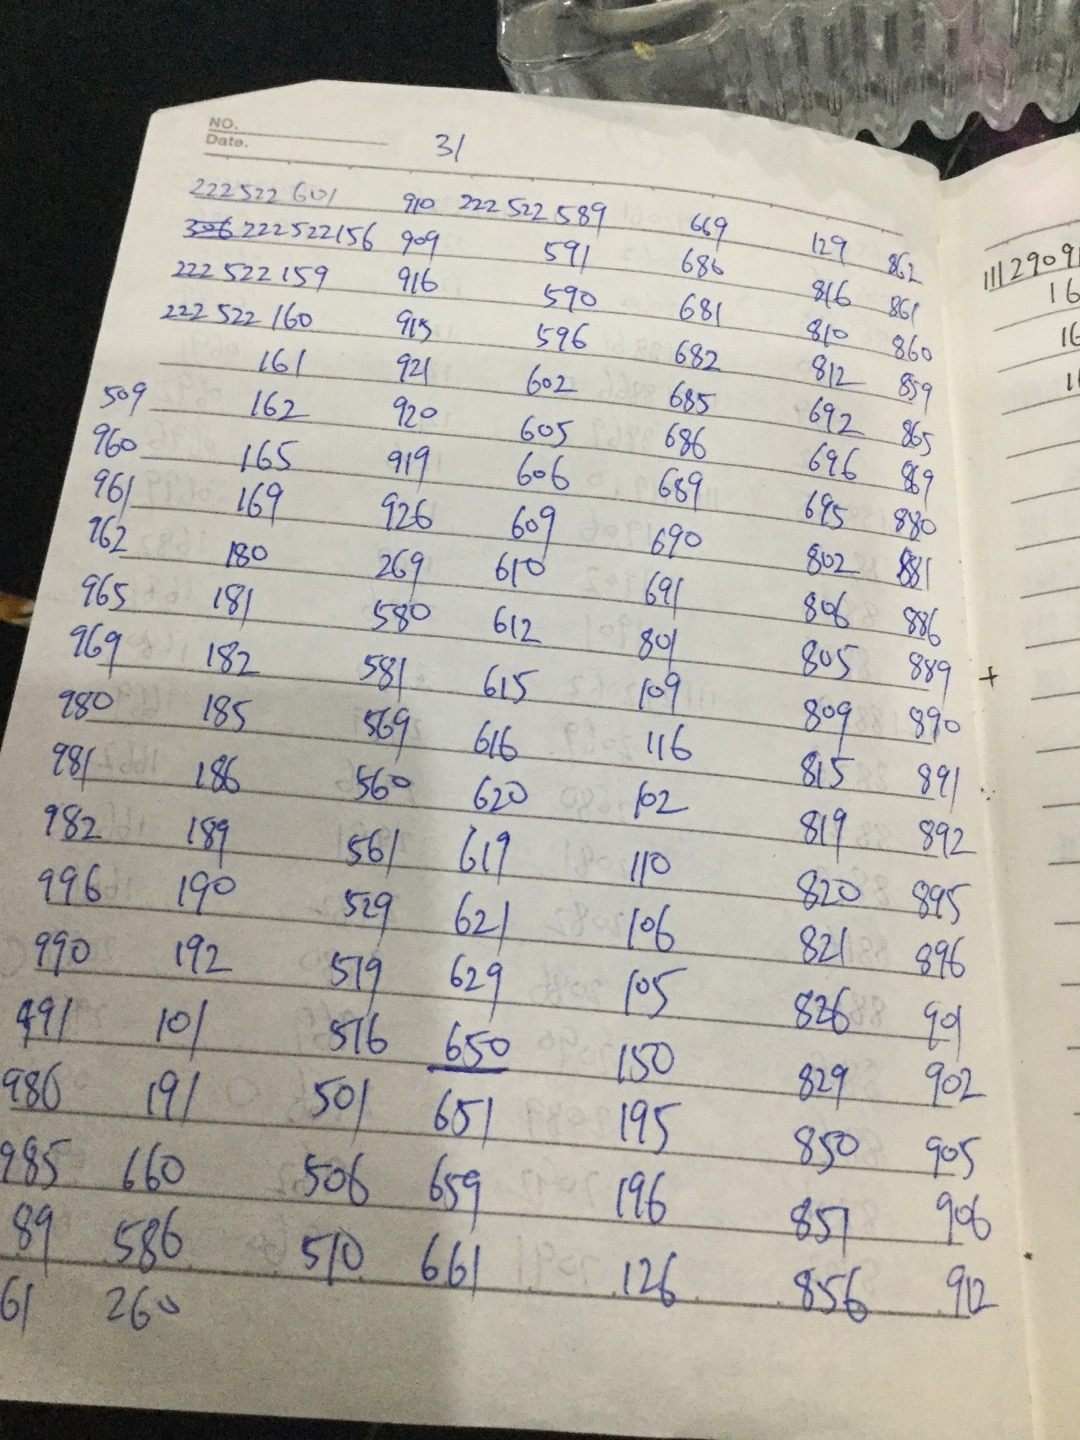 NO.
Date.
31
222 522 601 910 222 522 589 669 129 862
306 222 522 156 909 591 686 816 861
222 522 159 916 590 681 810 860
222 522 160 915 596 682 812 859
161 921 602 685 692 865
509 162 920 605 686 696 869
960 165 919 606 689 695 880
961 169 926 609 690 802 881
962 180 269 610 691 806 886
965 181 580 612 801 805 889
969 182 581 615 109 809 890
980 185 569 616 116 815 891
981 186 560 620 102 819 892
982 189 561 619 110 820 895
996 190 529 621 106 821 896
990 192 519 629 105 826 901
991 101 516 650 150 829 902
986 191 501 651 195 850 905
985 660 506 659 196 851 906
89 586 510 661 126 856 912
61 260
1112909
16
16